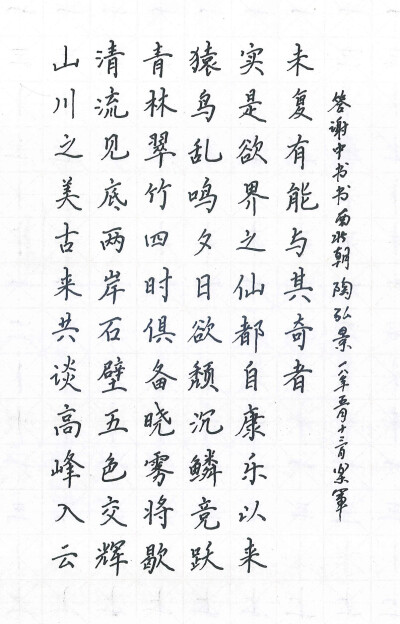 山川之美古来共谈高峰入云
清流见底两岸石壁五色交辉
青林翠竹四时俱备晓雾将歇
猿鸟乱鸣夕日欲颓沉鳞竞跃
实是欲界之仙都自康乐以来
未复有能与其奇者
答谢中书书南北朝陶弘景一八年五月十三日